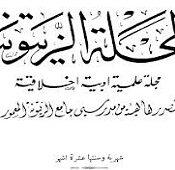 المجلة الزيتونية
مجلة علمية ادبية اخلاقية
تصدرها هيئة من مدرسي جامع الزيتونة المعمور
شهرية وسنتها عشرة اشهر